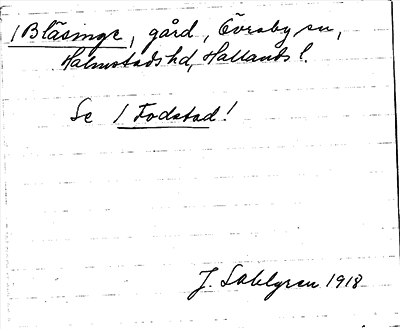 /Bläsinge, gård, Övraby sn,
Halmstads hd, Hallands l.
Se /Fodstad!
J. Sahlgren 1918